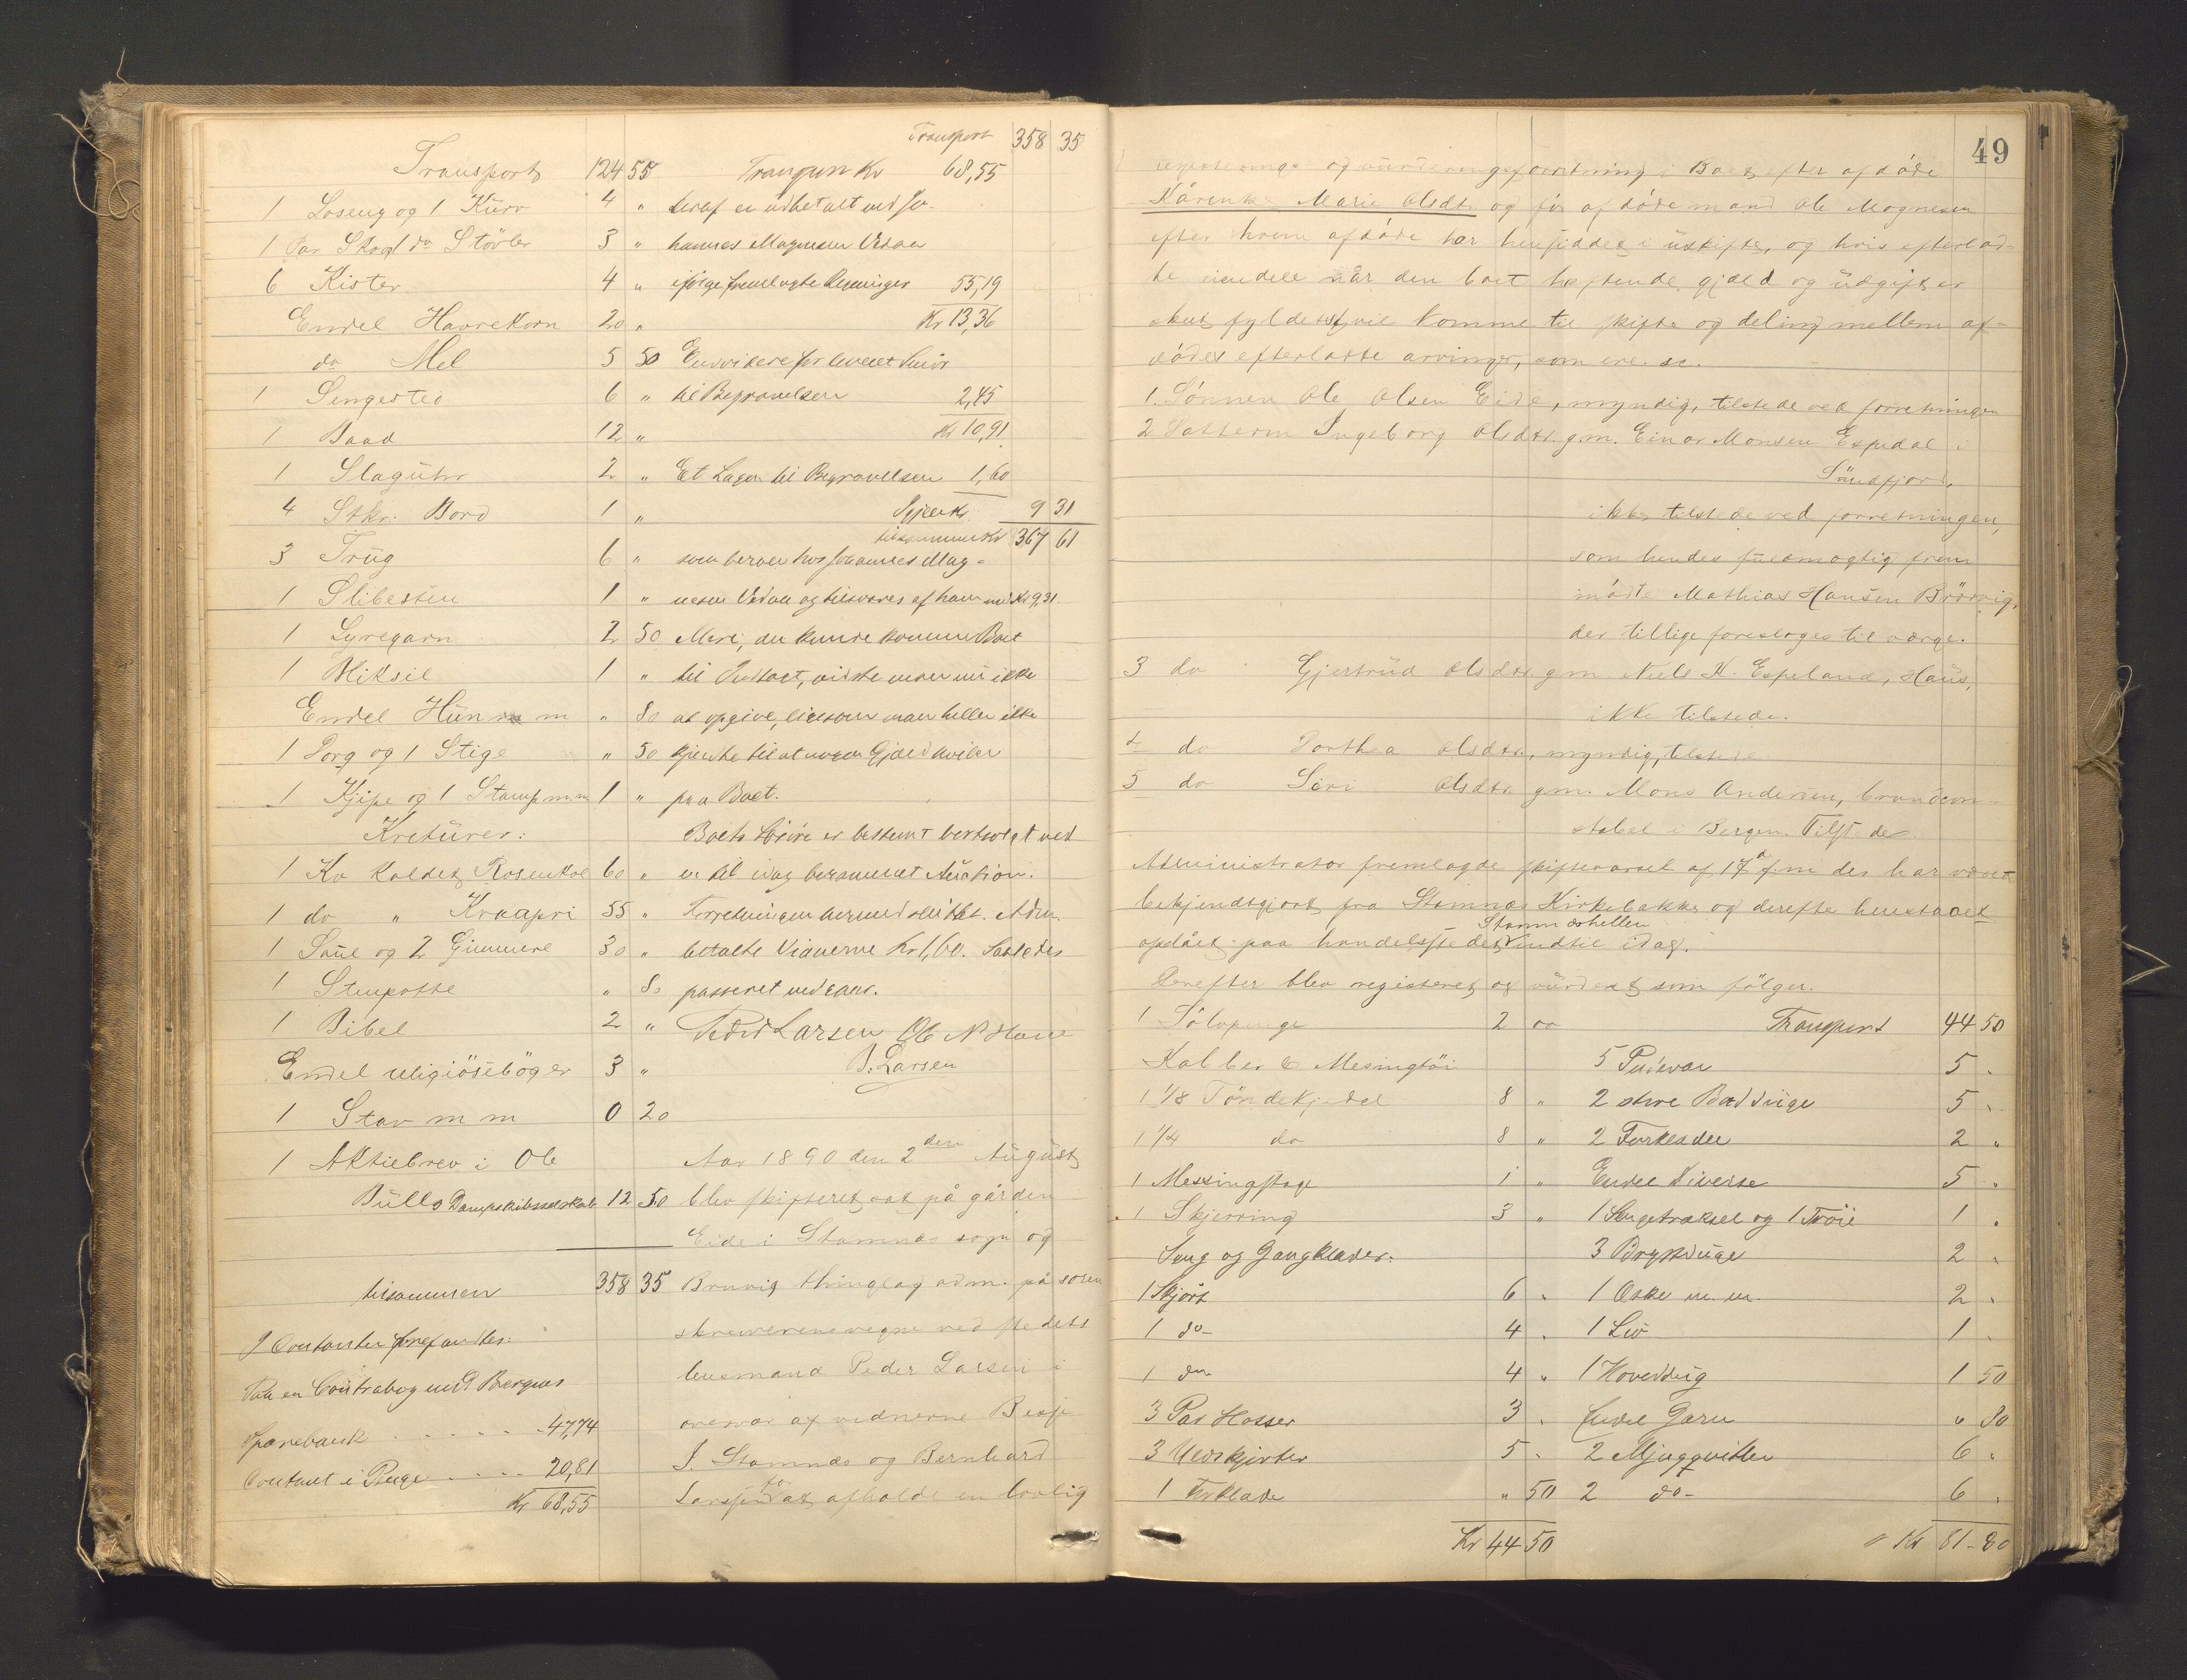 Transport 124 55
1 Loseng og 1 Kürv 4 "
1 Par Sko 1 do Stövler 3 "
6 Kister 4 "
Endel Havrekorn 20 "
do Mel 5 50
1 Sengested 6 "
1 Baad 12 "
1 Slagühr 2 "
4 Stkr. Bord 1 "
3 Trüg 6 "
1 Slibesten 1 "
1 Lyregarn 2 50
1 Hiksil 1 "
Endel Hün m m " 80
1 Torg og 1 Stige " 50
1 Kjipe og 1 Stamp m.m 1 "
Kretürer:
1 Ko kaldet Rosenkol 60 "
1 do " Kraapri 55 "
1 Saüe og 2 Gimmere 30 "
1 Stenpotte " 80
1 Bibel 2 "
Endel religiösebøger 3 "
1 Stav m m 0 20
1 Aktiebrev i Ole
Bülls Dampskibsselskab 12 50
tilsammen 358 35
I Contanter forefandtes:
Paa en Contrabog med Bergens
Sparebank . . . . . 47,74
Contant i Penge . . . . 20,81
Kr 68,55
Transport 358 35
Transport Kr 68,55
heraf er udbetalt ved Jo-
hannes Magnesen Vedaa
ifølge fremlagte Regninger 55,19
Kr 13,36
Endvidere for leveret Smør
til Begravelsen 2,45
Kr 10,91
Et Lagen til Begravelsen 1,60
Igjen Kr 9 31
tilsammen Kr 367 61
som beroer hos Johannes Mag-
nesen Vedaa og tilsvares af ham med Kr 9,31.
Mere, der kunde komme Boet
til Indtægt, vidste man nu ikke
at opgive, ligesom man heller ikke
kjendte til at nogen Gjæld hviler
paa Boet.
Boets Løsøre er bestemt bortsolgt ved
en til idag berammet Auction.
Forretningen hermed sluttet. Adm.
betalte Vidnerne Kr 1,60. Saaledes
passeret vedgaaes.
Peder Larsen Ole N. Hane
B. Larsen
Aar 1890 den 2den August
blev skifteret sat på gården
Eide i Stamnæs sogn og
Bruvig thinglag adm. på soren
skriverens vegne ved stedets
lensmand Peder Larsen i
overvær af vidnerne
J. Stamnæs og Bernhard
Larsen for at afholde en lovlig
49
registrerings og vürderingsforretning i Boet efter afdöde
Kårenke Marie Olsdtr og før afdøde mand Ole Magnesen
efter hvem afdøde har hensiddet i üskiftet, og hvis efterlad-
te eiendele når den boet heftende gjæld og üdgifter
er fyldestgjort vil komme til skifte og deling mellem af-
dødes efterladte arvinger, som ere: se.
1. Sönnen Ole Olsen Eide, myndig, tilstede ved forretningen
2 Datteren Ingeborg Olsdtr. g.m. Einar Monsen Espedal i
Söndfjord,
ikke tilstede ved forretningen,
som hendes fuldmægtig frem
mödte Mathias Hansen Brörvig,
der tillige foresloges til værge.
3 do Gjertrüd Olsdtr g.m. Niels K. Espeland, Haüs,
ikke tilstede.
4 do Dorthea Olsdtr, myndig, tilstede
5 do Siri Olsdtr g.m. Mons Andersen, brandcon-
stabel i Bergen. Tilstede
Administrator fremlagde skiftevarsel af 17de f.m. der har været
bekjendtgjort fra Stamnæs Kirkebakke og derefter henstaaet
opslået paa handelsstedet Stamnæshellen indtil idag.
Derefter blev registeret og vürderet som fölger:
1 Sölvpenge 2 00
Kobber & Mesingtöi
1 1/8 Töndekjedel 8 "
1 1/4 do 8 "
1 Messingstage 1 "
1 Skjerring 3 "
Seng og Gangklæder:
1 Skjört 6 "
1 do- 4 "
1 do 4 "
3 Par Hosser 3 "
3 Uldskjorter 5 "
1 Forklæde " 50
Kr 44 50
Transport 44 50
5 Pudevar 5 "
2 stk Bordduge 5 "
2 Forklæder 2 "
Endel Diverse 5 "
1 Sengetræksel og 1 Trøie 1 "
3 Brystduge 2 "
1 Æske m. m. 2 "
1 Liv 1 "
1 Hoveddug 1 50
Endel Garn " 80
2 Mjuggvitler 6 "
2 do- 6 "
Kr 81 - 80